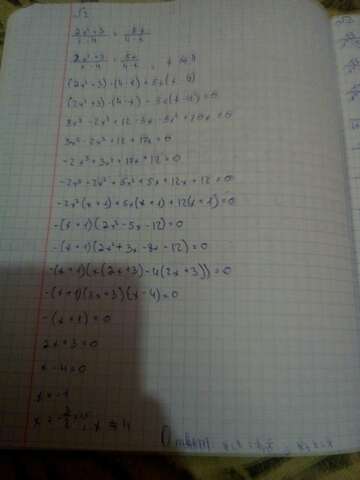 √2
(2x²+3)/(x-4) = 5x/(4-x)
(2x²+3)/(x-4) = 5x/(4-x), x ≠ 4
(2x²+3)·(4-x) = 5x(x-4)
(2x²+3)·(4-x) - 5x(x-4) = 0
8x²-2x³+12-3x-5x²+20x=0
3x²-2x³+12+17x=0
-2x³+3x²+17x+12=0
-2x³-2x²+5x²+5x+12x+12=0
-2x²(x+1)+5x(x+1)+12(x+1)=0
-(x+1)(2x²-5x-12)=0
-(x+1)(2x²+3x-8x-12)=0
-(x+1)(x(2x+3)-4(2x+3))=0
-(x+1)(2x+3)(x-4)=0
-(x+1)=0
2x+3=0
x-4=0
x=-1
x=-3/2, x ≠ 4
Ответ: